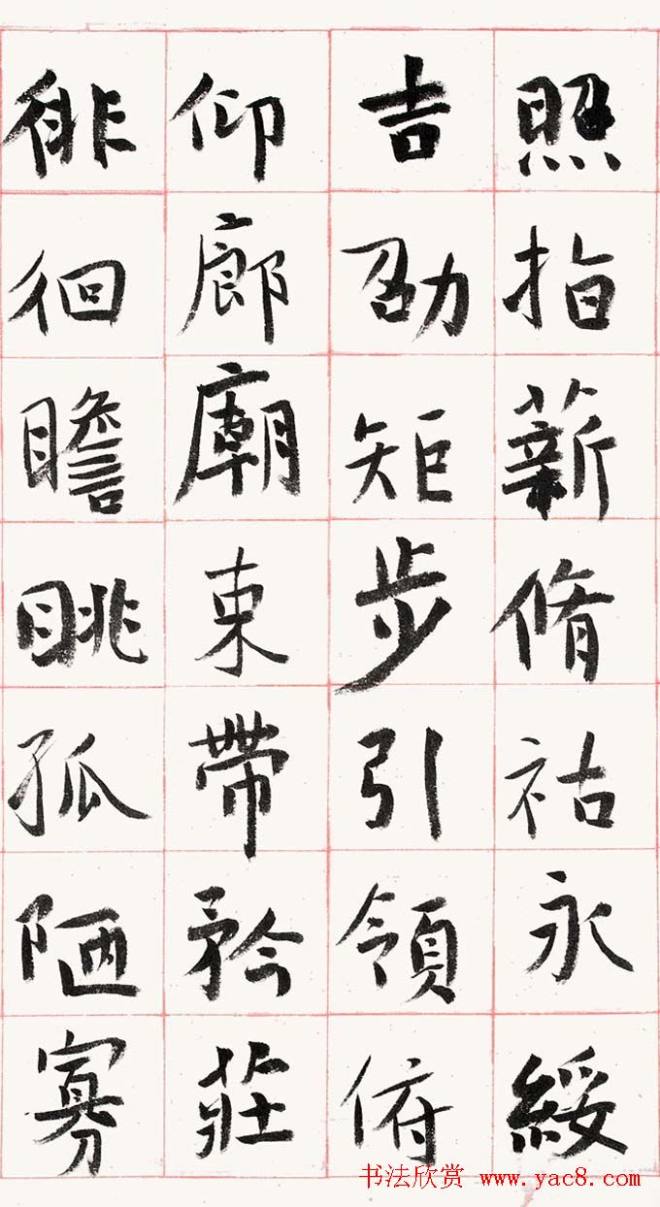 照指薪脩祜永綏
吉劭矩步引領俯
仰廊廟束帶矜莊
徘徊瞻眺孤陋寡
书法欣赏 www.yac8.com